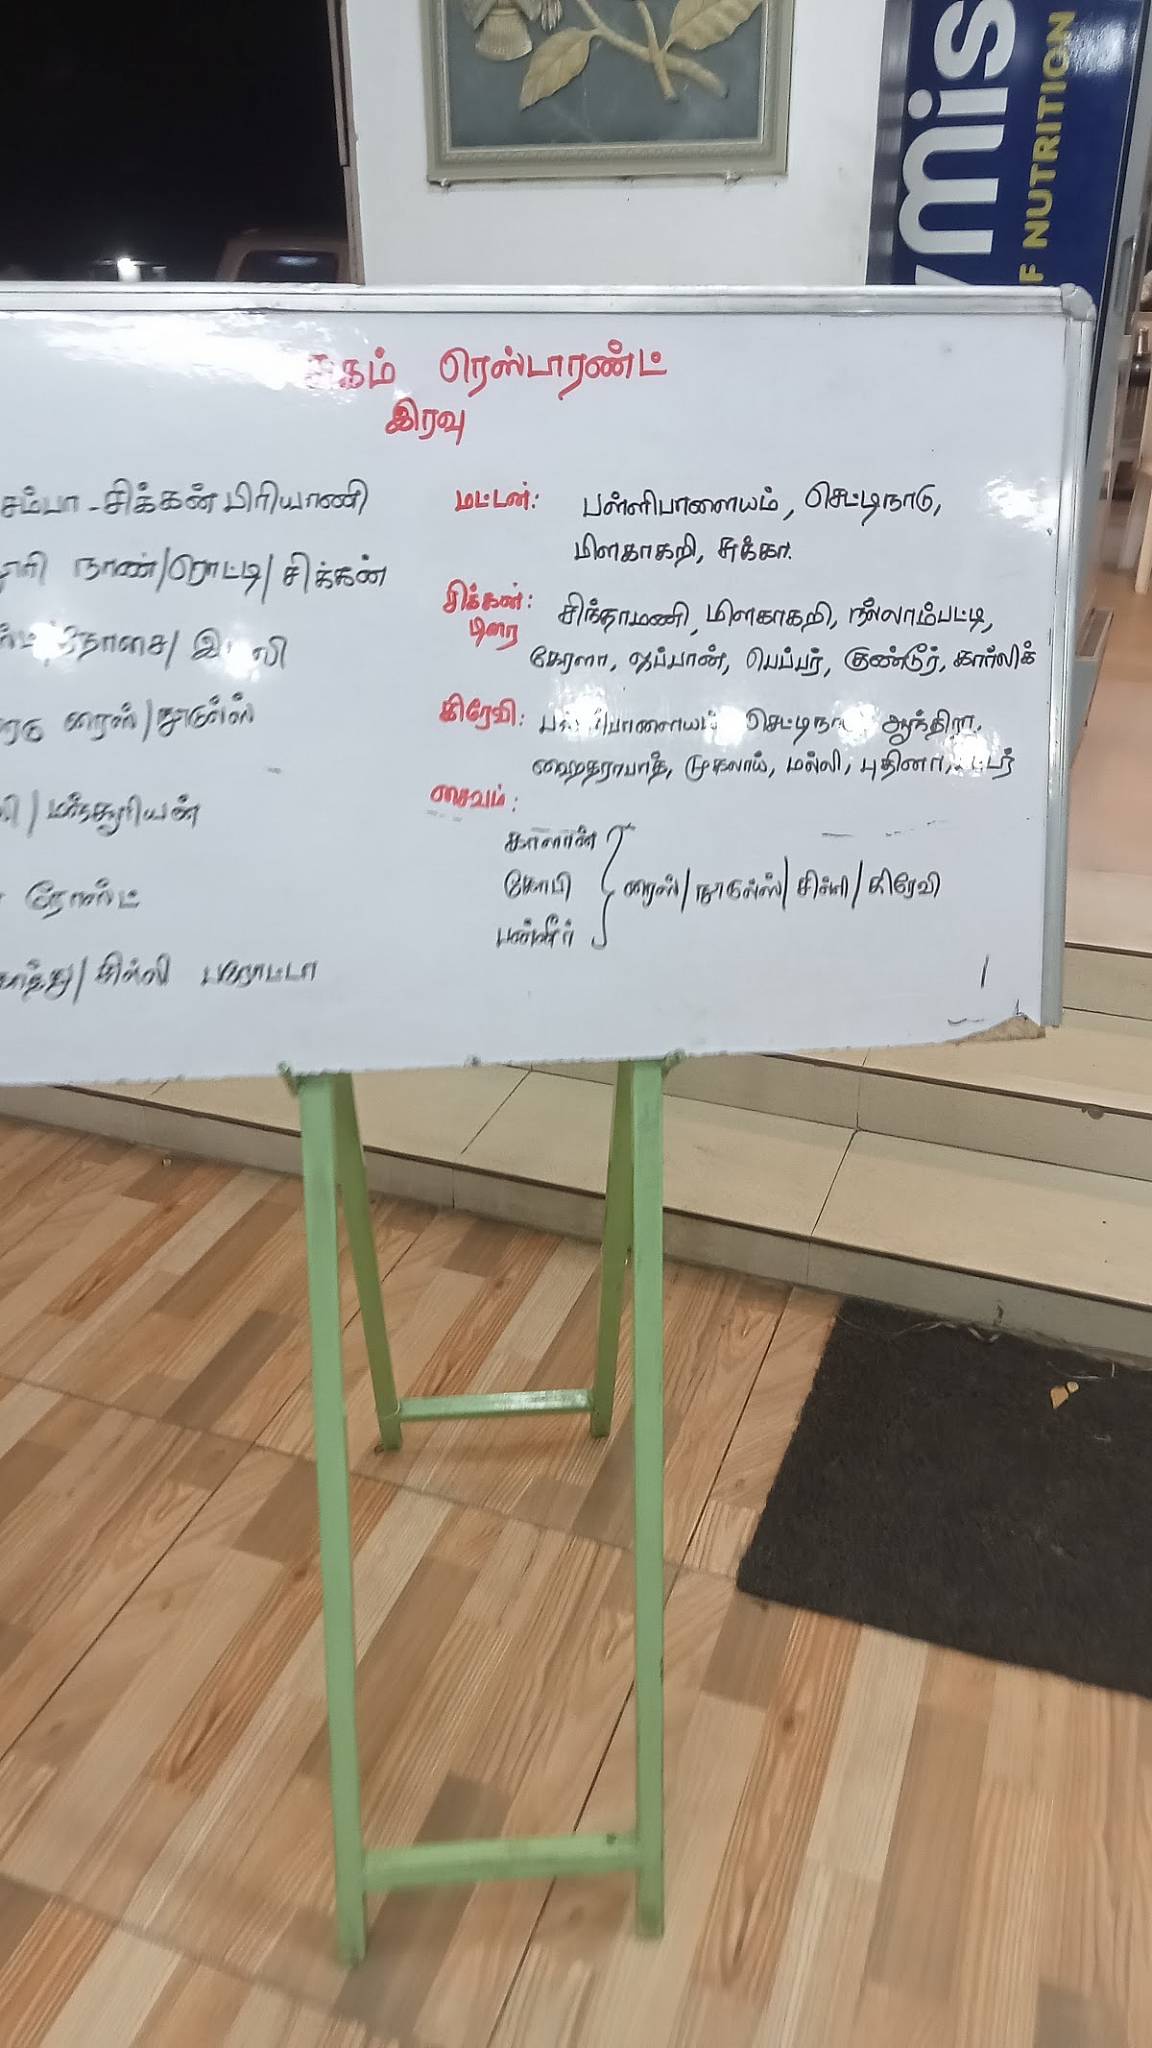 மிஸ்
NUTRITION
சுகம் ரெஸ்டாரண்ட்
இரவு
சம்பா - சிக்கன் பிரியாணி
நாண்/ரொட்டி/சிக்கன்
தோசை/
ரைஸ்/நூடுல்ஸ்
மஞ்சூரியன்
ரோஸ்ட்
சில்லி பரோட்டா
மட்டன்: பள்ளிபாளையம், செட்டிநாடு,
மிளகாகறி, சுக்கா.
சிக்கன்: சிந்தாமணி, மிளகாகறி, நல்லாம்பட்டி,
டிரை கேரளா, ஜப்பான், பெப்பர், குண்டூர், கார்லிக்
கிரேவி: பள்ளிபாளையம் செட்டிநாடு ஆந்திரா,
ஹைதராபாத், முகலாய், மல்லி, புதினா,
சைவம்:
காளான்
கோபி ரைஸ்/நூடுல்ஸ்/சில்லி/கிரேவி
பன்னீர்